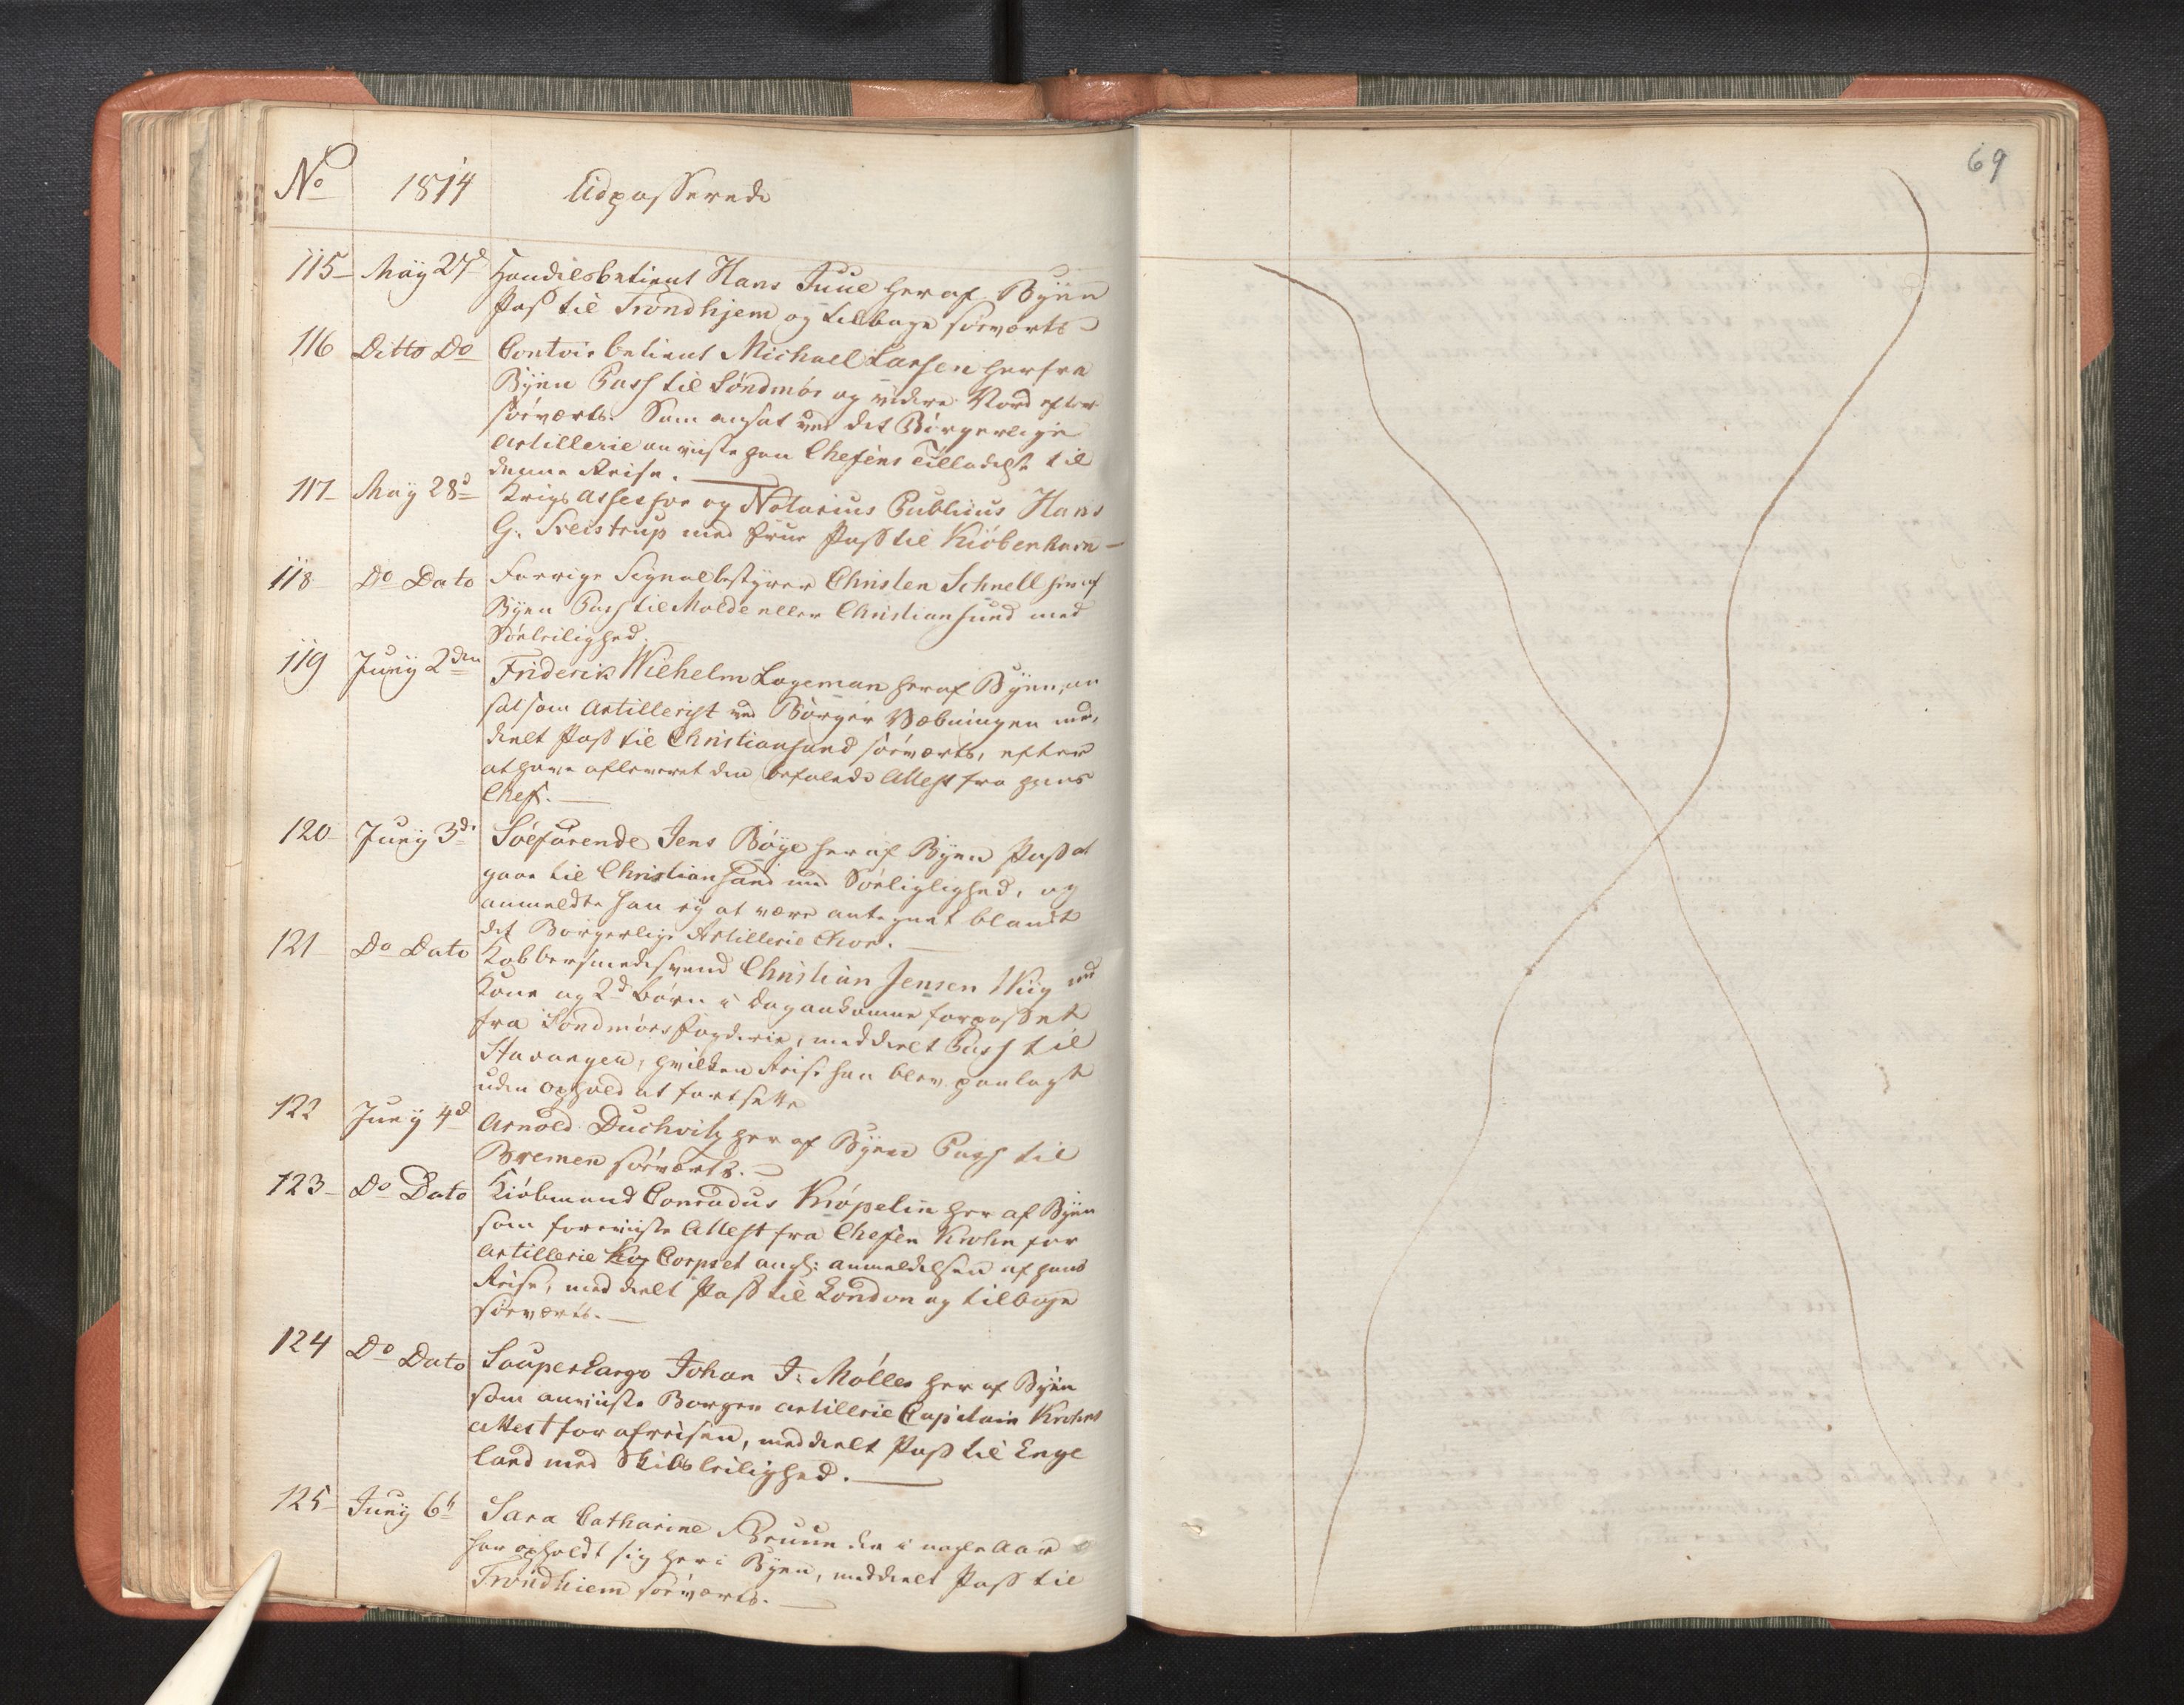 69
No 1814 Udpasserede
115 May 27d Handelsbetient Hans Juul her af Byen
Pas til Trondhjem og tilbage söeværts
116 Ditto Do Contoir betient Michael Larsen herfra
Byen Pass til Söndmör og videre Nord efter
söeværts. Som ansat ved det Borgerlige
Artillerie anviiste han Chefens Tilladelse til
denne Reise.
117 May 28d Krigs Assessor og Notarius Publicus Hans
G. Sveistrup med Frue Pass til Kiöbenhavn
118 Do Dato Forrige Signalbestyrer Christen Schnell her af
Byen Pass til Molde eller Christiansund med
Söeleilighed.
119 Juny 2den Friderik Wilhelm Lageman her af Byen, an
sat som Artillerist ved Borger Væbningen med,
deelt Pass til Christiansand söeværts, efter
at have afleveret den befalede Attest fra hans
Chef.
120 Juny 3d Söefarende Jens Böye her af Byen Pass at
gaae til Christiansand med Söeleiglighed, og
anmeldte han ej at være antegnet blandt
det Borgerlige Artillerie Chor.
121 Do Dato Kobbersmedsvend Christian Jensen Wiig med
Kone og 2d börn i dag ankomne forpasset
fra Söndmörs Fogderie, meddeelt Pass til
Stavanger, hvilken Reise han blev paalagt
uden Ophold at fortsætte
122 Juny 4d Arnold Duchvitz her af Byen Pass til
Bremen söeværts.
123 Do Dato Kiöbmand Conradus Knöpelin her af Byen
som foreviiste Attest fra Chefen Krohn for
Artillerie Kog Corpset ang: anmeldelsen af hans
Reise, meddeelt Pass til London og tilbage
söeværts.
124 Do Dato Souperkargo Johan J: Möller her af Byen
som anviiste Borger artillerie Capitain Krohns
Attest for afreisen, meddeelt Pass til Enge
land med Skibsleilighed.
125 Juny 6t Sara Catharine Bruun der i nogle Aar
har opholdt sig her i Byen, meddeelt Pass til
Trondhiem söeværts.